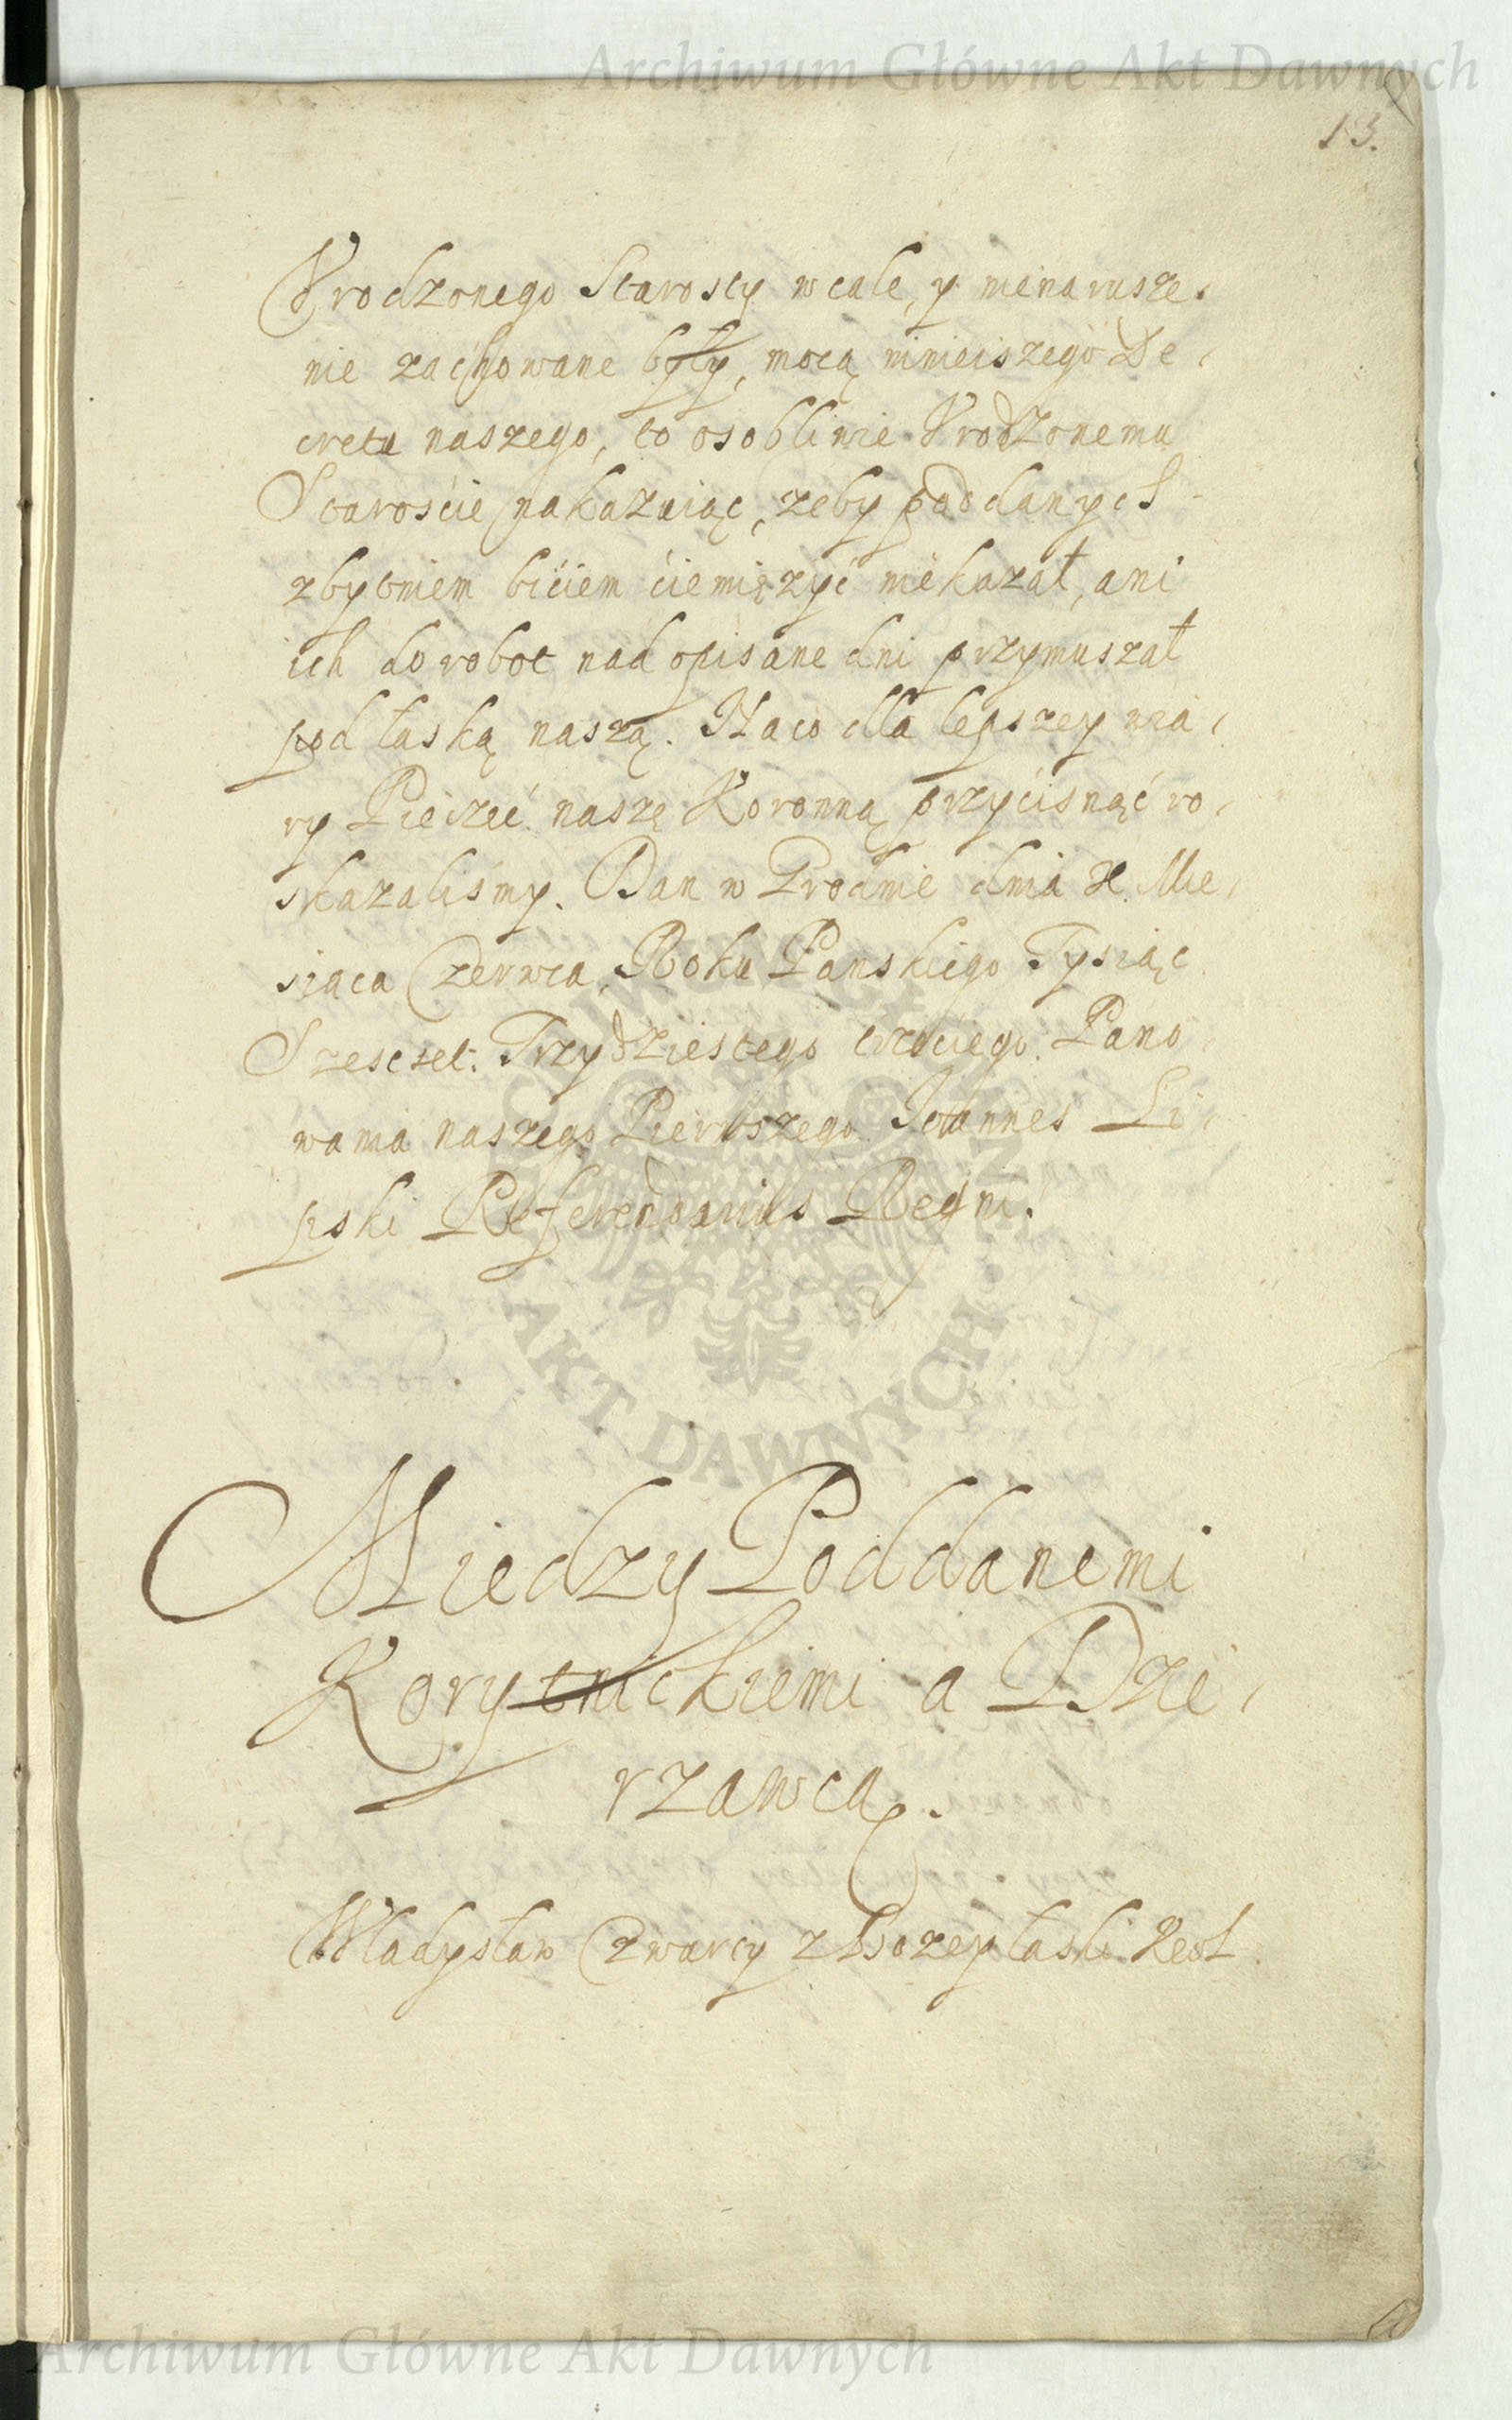 Archiwum Główne Akt Dawnych
13.
Vrodzonego Starosty wcale, y nienarusze,
nie zachowane były, mocą ninieiszego De,
cretu naszego, to osobliwie Vrodzonemu
Staroście nakazuiąc, zeby poddanych
zbytniem biciem ciemięzyć niekazał, ani
ich do robot nad opisane dni przymuszał
pod łaską naszą. Na co dla lepszey wia,
ry Pieczeć naszę Koronną przyćisnąć ro,
skazaliśmy. Dan w Grodnie dnia X. Mie,
siąca Czerwca, Roku Panskiego Tysiąc
Szescset. Trzydziestego trzeciego. Pano,
wania naszego Pierwszego. Joannes Li,
pski Referendarius Regni.
AKT DAWNYCH
Miedzy Poddanemi
Korytnickiemi a Dzie,
rzawcą.
Władysław Czwarty z Bozey łaski Krol
Archiwum Główne Akt Dawnych